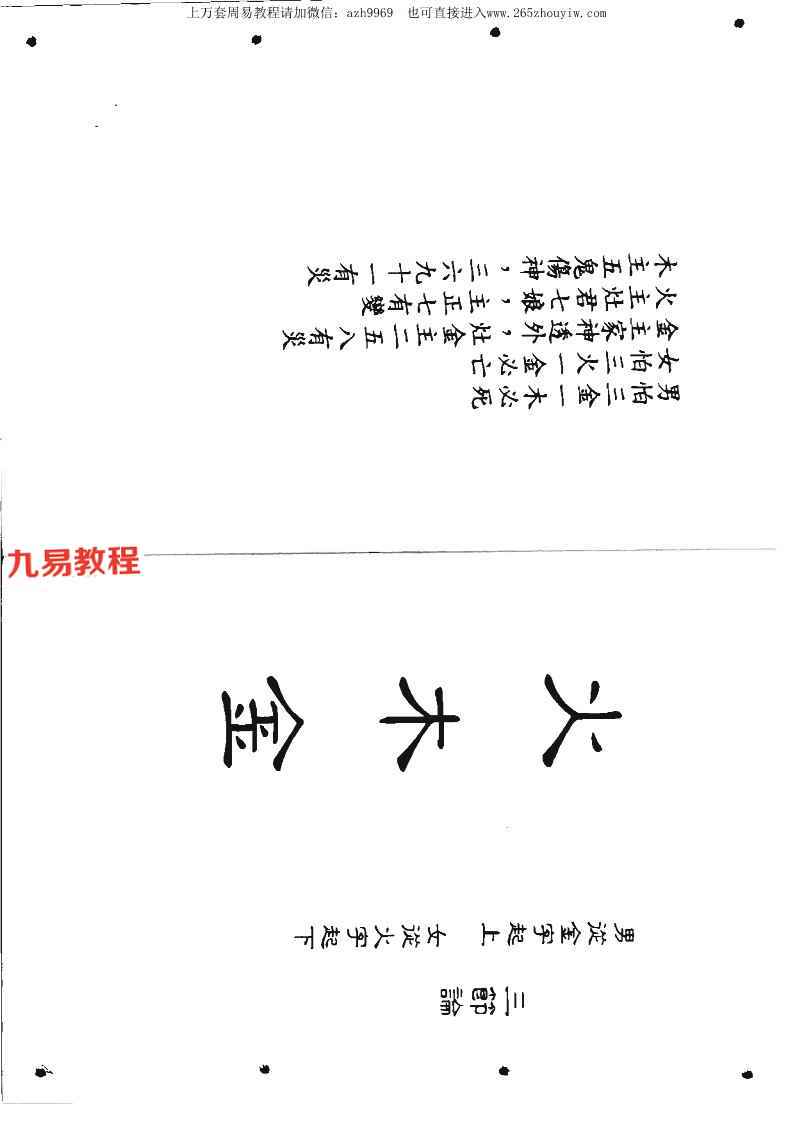 上万套周易教程请加微信：azh9969 也可直接进入www.265zhouyiw.com
三節論
男從金字起上　女從火字起下
火 木 金
男怕三金一木必死
女怕三火一金必亡
金主家神透外，灶金主二五八有災
火主灶君七娘，主正七有變
木主五鬼傷神，三六九十一有災
九易教程